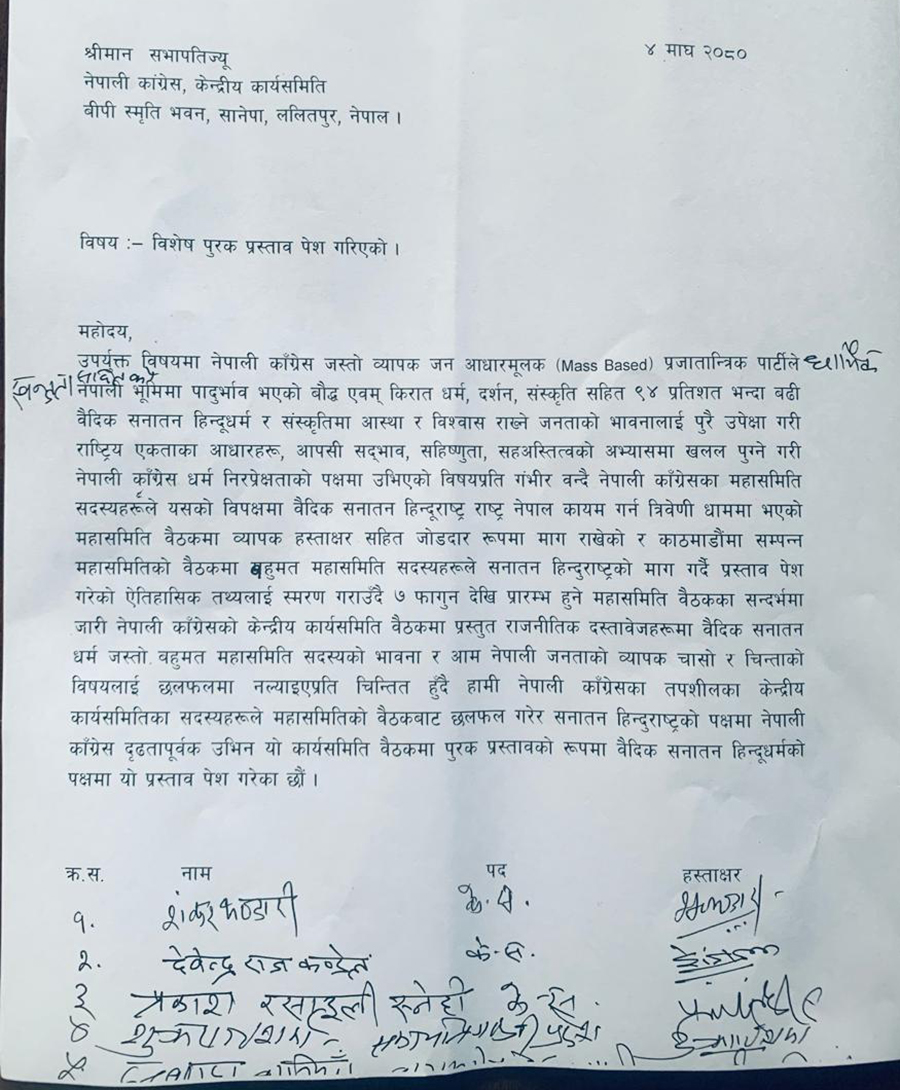 ४ माघ २०८०
श्रीमान सभापतिज्यू
नेपाली कांग्रेस, केन्द्रीय कार्यसमिति
बीपी स्मृति भवन, सानेपा, ललितपुर, नेपाल ।
विषय :– विशेष पुरक प्रस्ताव पेश गरिएको ।
महोदय,
उपर्युक्त विषयमा नेपाली काँग्रेस जस्तो व्यापक जन आधारमूलक (Mass Based) प्रजातान्त्रिक पार्टीले धार्मिक
नेपाली भूमिमा पादुर्भाव भएको बौद्ध एवम् किरात धर्म, दर्शन, संस्कृति सहित ९४ प्रतिशत भन्दा बढी
वैदिक सनातन हिन्दूधर्म र संस्कृतिमा आस्था र विश्वास राख्ने जनताको भावनालाई पुरै उपेक्षा गरी
राष्ट्रिय एकताका आधारहरू, आपसी सद्‌भाव, सहिष्णुता, सहअस्तित्वको अभ्यासमा खलल पुग्ने गरी
नेपाली काँग्रेस धर्म निरप्रेक्षताको पक्षमा उभिएको विषयप्रति गंभीर वन्दै नेपाली काँग्रेसका महासमिति
सदस्यहरूले यसको विपक्षमा वैदिक सनातन हिन्दूराष्ट्र राष्ट्र नेपाल कायम गर्न त्रिवेणी धाममा भएको
महासमिति वैठकमा व्यापक हस्ताक्षर सहित जोडदार रूपमा माग राखेको र काठमाडौंमा सम्पन्न
महासमितिको वैठकमा बहुमत महासमिति सदस्यहरूले सनातन हिन्दुराष्ट्रको माग गर्दै प्रस्ताव पेश
गरेको ऐतिहासिक तथ्यलाई स्मरण गराउँदै ७ फागुन देखि प्रारम्भ हुने महासमिति वैठकका सन्दर्भमा
जारी नेपाली काँग्रेसको केन्द्रीय कार्यसमिति वैठकमा प्रस्तुत राजनीतिक दस्तावेजहरूमा वैदिक सनातन
धर्म जस्तो वहुमत महासमिति सदस्यको भावना र आम नेपाली जनताको व्यापक चासो र चिन्ताको
विषयलाई छलफलमा नल्याइएप्रति चिन्तित हुँदै हामी नेपाली काँग्रेसका तपशीलका केन्द्रीय
कार्यसमितिका सदस्यहरूले महासमितिको वैठकबाट छलफल गरेर सनातन हिन्दुराष्ट्रको पक्षमा नेपाली
काँग्रेस दृढतापूर्वक उभिन यो कार्यसमिति वैठकमा पुरक प्रस्तावको रूपमा वैदिक सनातन हिन्दूधर्मको
पक्षमा यो प्रस्ताव पेश गरेका छौं ।
क्र.स. नाम पद हस्ताक्षर
१. शंकर भण्डारी के.स.
२. देवेन्द्र राज कण्डेल के.स.
३ प्रकाश रसाइली स्नेही के.स.
४
५